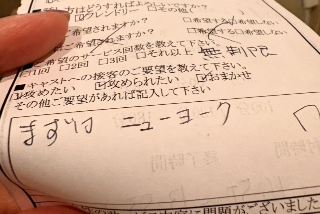 はどうすればよ
□フレンド □その他
希望されますか? □希望する □希望しない
希望されますか? □希望する □希望しない
希望のサービス回数を教えて下さい。
□1回 □2回 □3回 □それ以上 無制限
■キャストへの接客のご要望を教えて下さい。
☑攻めたい □攻められたい ☑おまかせ
その他ご要望があれば記入して下さい
まずは ニューヨーク
終了時間
に問題がございました